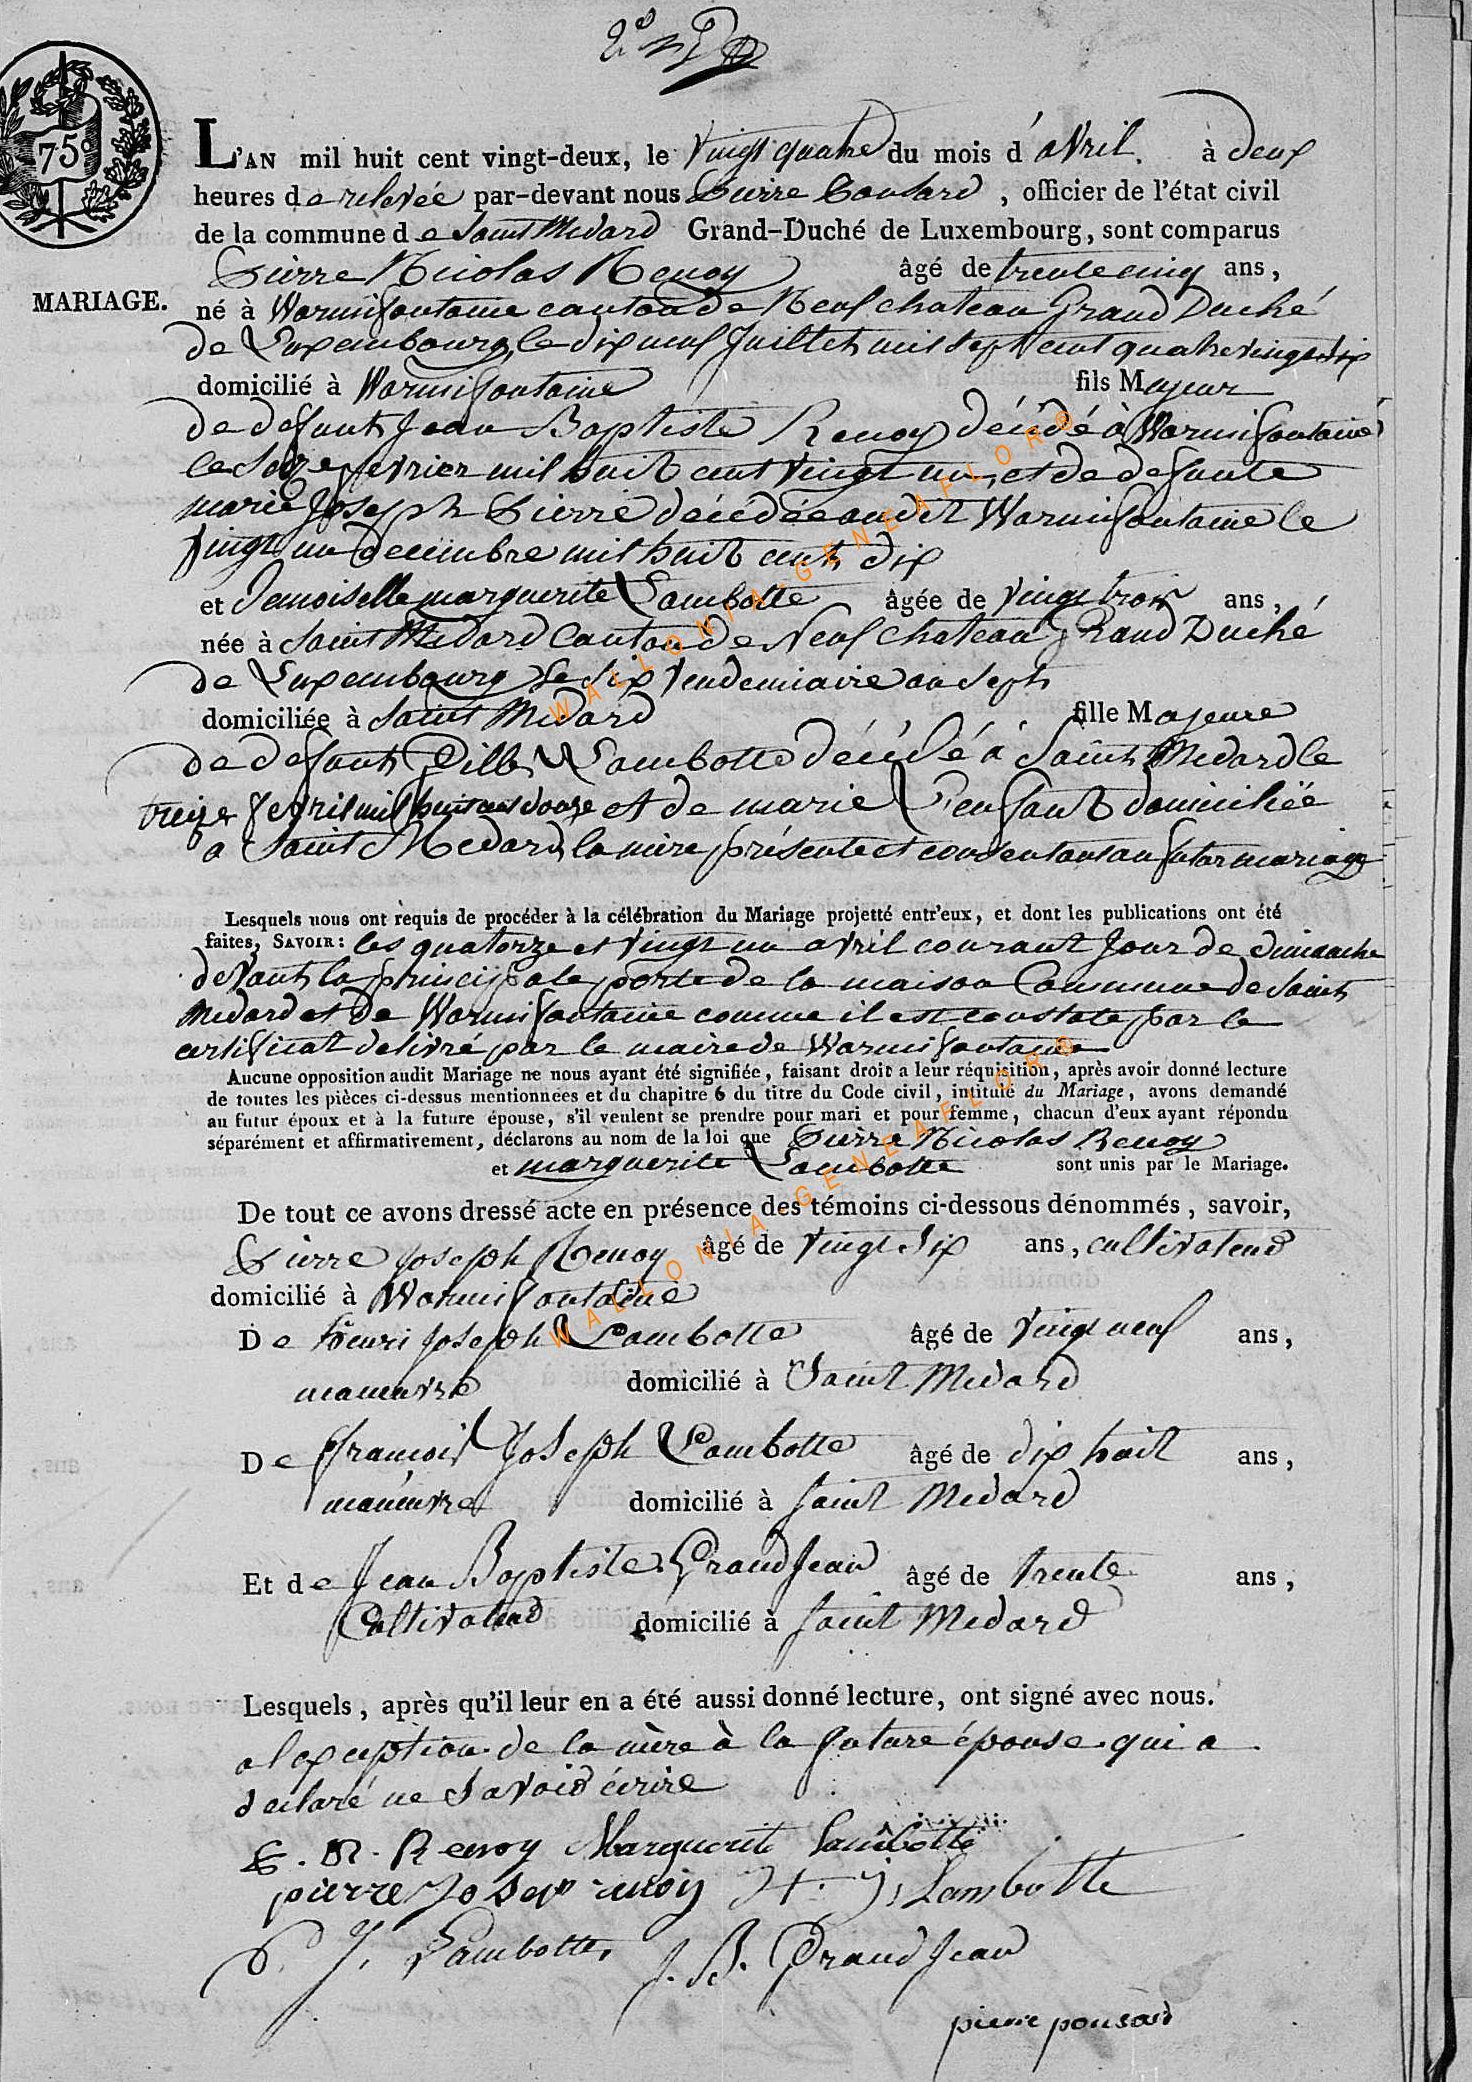 75c
L'AN mil huit cent vingt-deux, le vingt quatre du mois d'avril. à deux
heures de relevée par-devant nous Pierre Pousard, officier de l'état civil
de la commune de Saint Medard Grand-Duché de Luxembourg, sont comparus
Pierre Nicolas Renoy âgé de trente cinq ans,
MARIAGE.
né à Warmifontaine canton de Neufchateau Grand Duché
de Luxembourg le dix neuf Juillet mil sept cent quatre vingt six
domicilié à Warmifontaine fils Majeur
de defunt Jean Baptiste Renoy décédé à Warmifontaine
le seize fevrier mil huit cent vingt un, et de defunte
marie Joseph Pierre décédée audit Warmifontaine le
vingt un decembre mil huit cent dix
et Demoiselle marguerite Lambotte âgée de vingt trois ans,
née à Saint Medard Canton de Neufchateau Grand Duché
de Luxembourg le six Vendemiaire an sept
domiciliée à Saint Medard fille Majeure
de defunt Lambotte décédé à Saint Medard le
treize mil huit cent douze et de marie Lenfant domiciliée
a Saint Medard, la mère présente et consentant au futur mariage
Lesquels nous ont requis de procéder à la célébration du Mariage projetté entr'eux, et dont les publications ont été
faites, SAVOIR: les quatorze et vingt un avril courant Jour de dimanche
devant la principale porte de la maison Commune de Saint
Medard et de Warmifontaine comme il est constaté par le
certificat delivré par le maire de Warmifontaine
Aucune opposition audit Mariage ne nous ayant été signifiée, faisant droit a leur réquisition, après avoir donné lecture
de toutes les pièces ci-dessus mentionnées et du chapitre 6 du titre du Code civil, intitulé du Mariage, avons demandé
au futur époux et à la future épouse, s'il veulent se prendre pour mari et pour femme, chacun d'eux ayant répondu
séparément et affirmativement, déclarons au nom de la loi que Pierre Nicolas Renoy
et marguerite Lambotte sont unis par le Mariage.
De tout ce avons dressé acte en présence des témoins ci-dessous dénommés, savoir,
Pierre Joseph Renoy âgé de vingt six ans, cultivateur
domicilié à Warmifontaine
De henri Joseph Lambotte âgé de vingt neuf ans,
manœuvre domicilié à Saint Medard
De francois Joseph Lambotte âgé de dix huit ans,
manœuvre domicilié à Saint Medard
Et de Jean Baptiste GrandJean âgé de trente ans,
Cultivateur domicilié à Saint Medard
Lesquels, après qu'il leur en a été aussi donné lecture, ont signé avec nous.
a lexception de la mère à la future épouse qui a
declaré ne savoir écrire
P. N. Renoy Marguerite Lambotte
pierre Joseph renoy H. J. Lambotte
J. Lambotte, J. B. GrandJean
pierre pousard
WALLONIA-GENEAFLOR®
WALLONIA-GENEAFLOR®